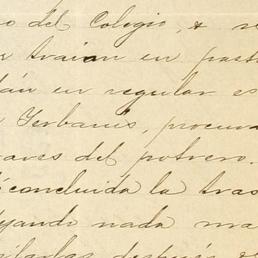 o del Colegio, & se
traian en past
án en regular es
Yerbanis, procura
ares del potrero.
concluida la tras
yando nada ma
después